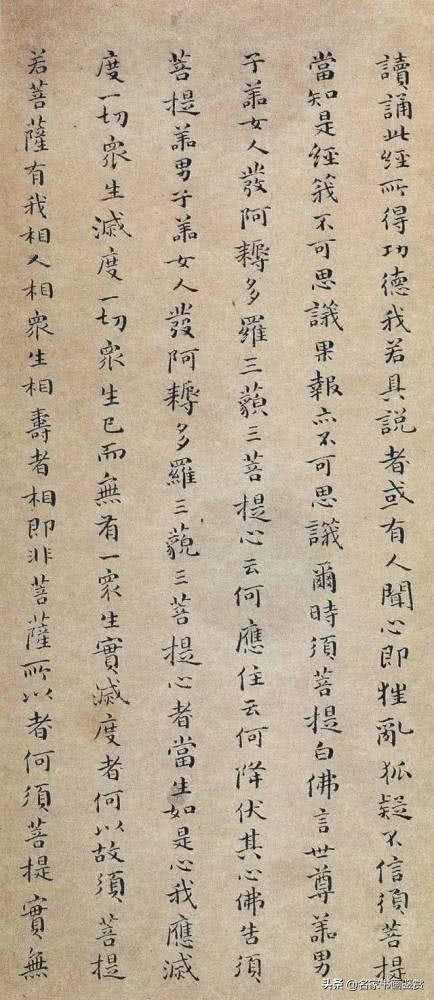 讀誦此經所得功德我若具說者或有人聞心即狂亂狐疑不信須菩提
當知是經義不可思議果報亦不可思議爾時須菩提白佛言世尊善男
子善女人發阿耨多羅三藐三菩提心云何應住云何降伏其心佛告須
菩提善男子善女人發阿耨多羅三藐三菩提心者當生如是心我應滅
度一切眾生滅度一切眾生已而無有一眾生實滅度者何以故須菩提
若菩薩有我相人相眾生相壽者相即非菩薩所以者何須菩提實無
头条 @名家书画鉴赏